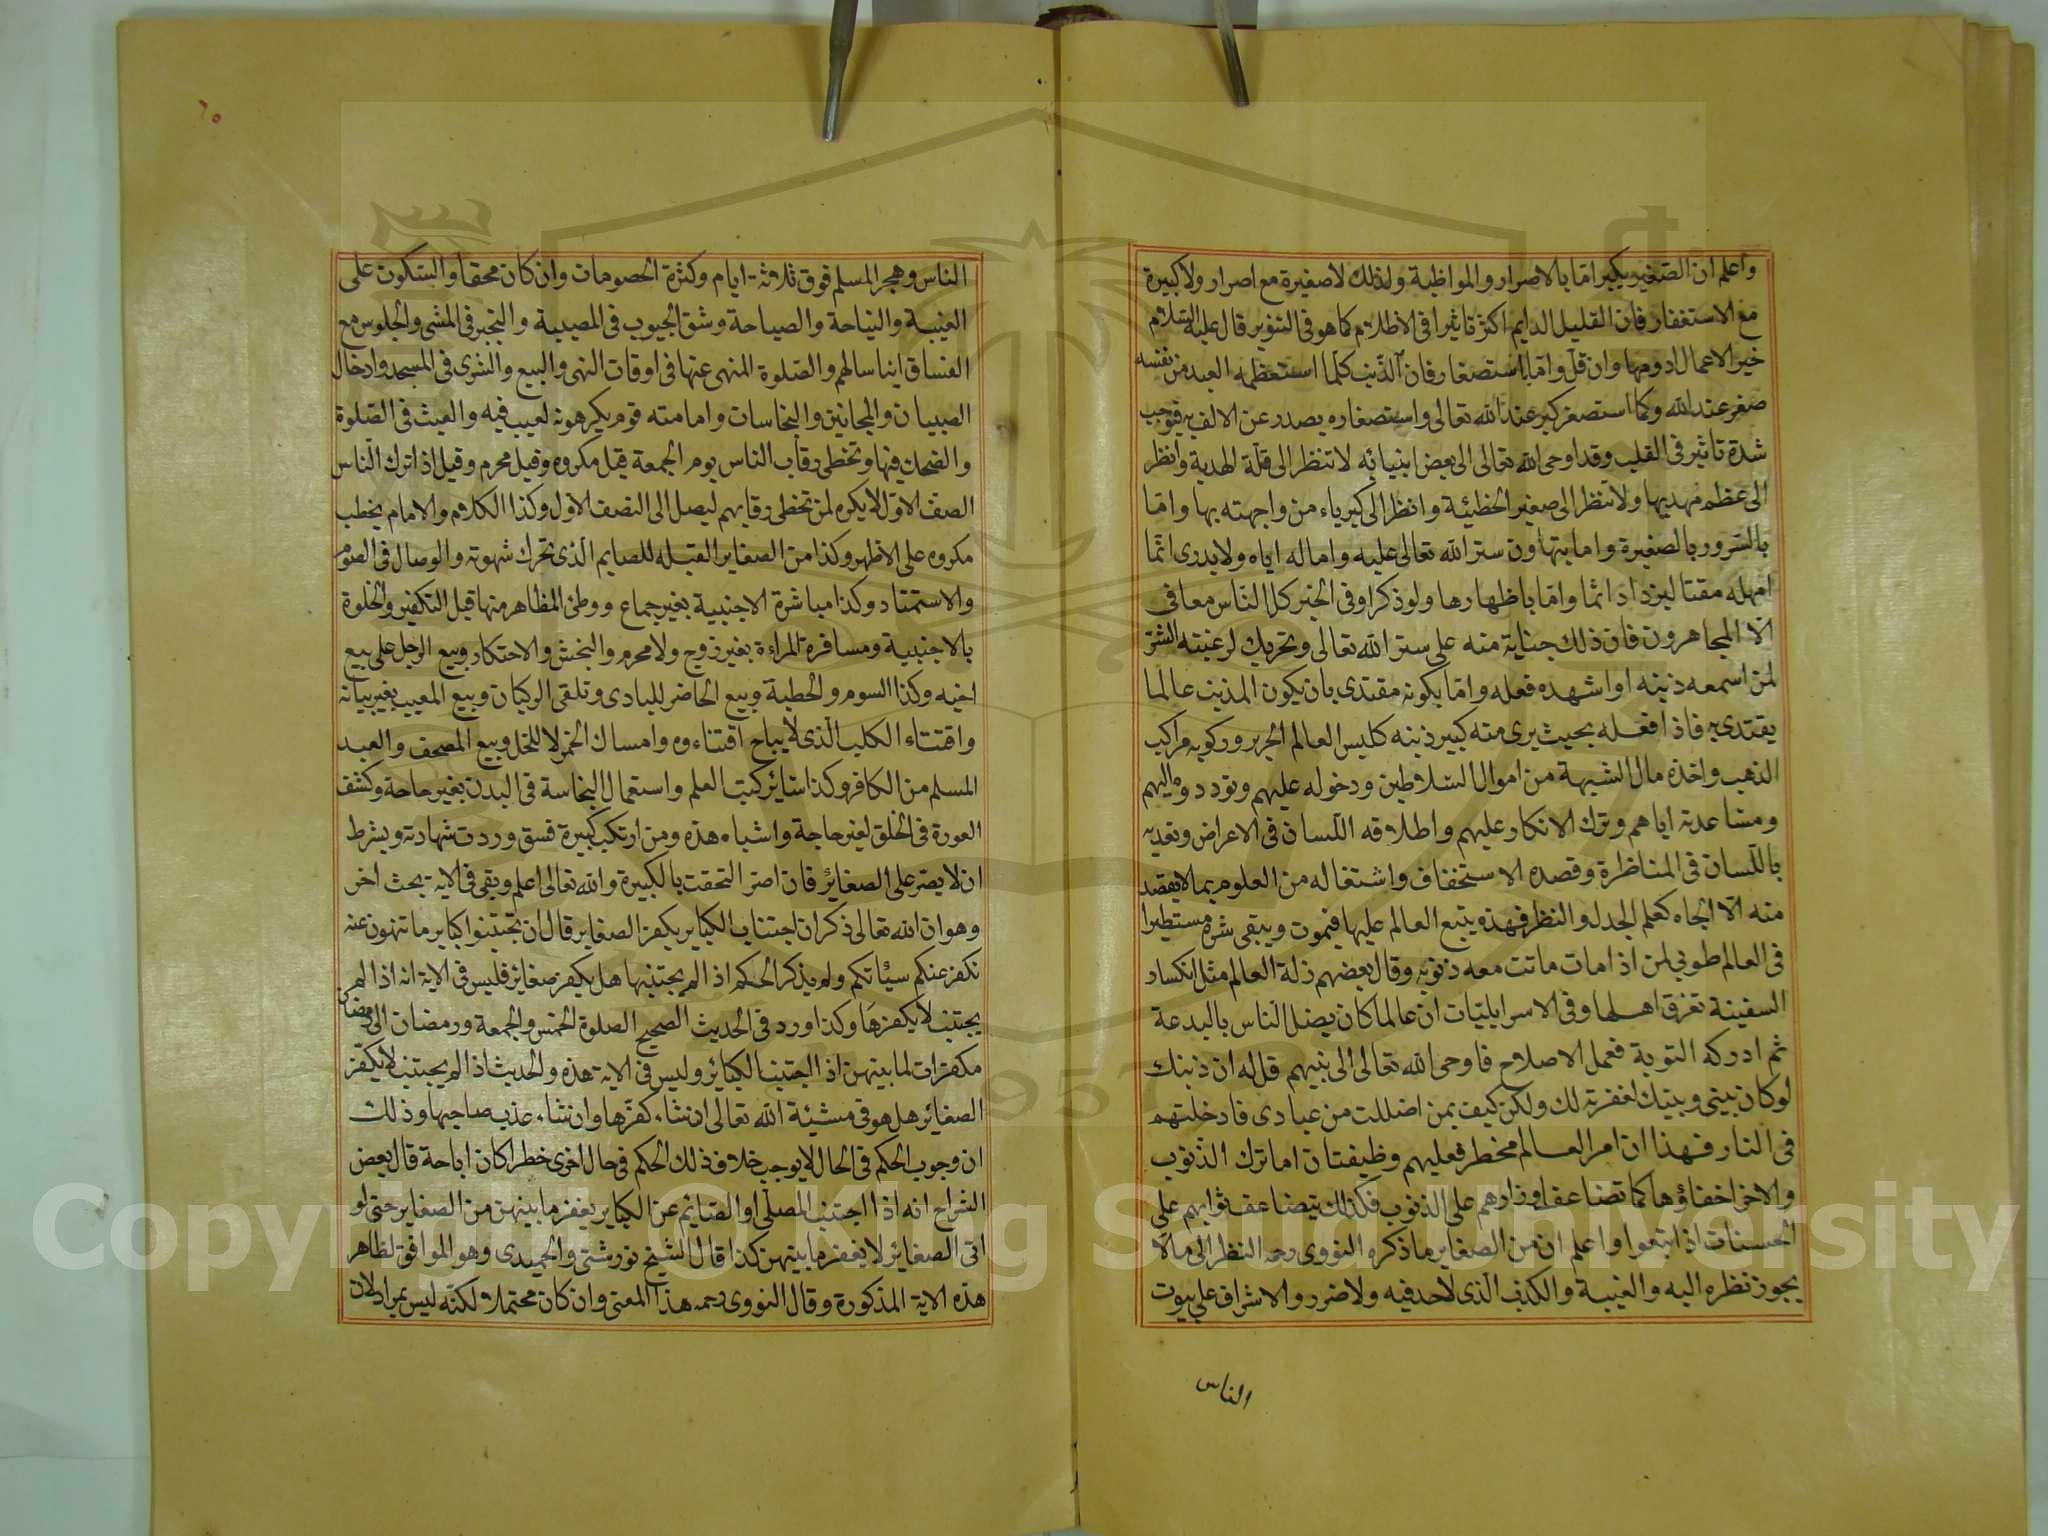 واعلم ان الصغير يكبر امّا بالاصرار والمواظبة ولذلك لا صغيرة مع اصرار ولا كبيرة
مع الاستغفار فان القليل الدايم اكثر تاثيرا في الاظلام كما هو في التنوير قال عليه السّلام
خير الاعمال ادومها وان قلّ وامّا باستصغار فان الذّنب كلّما استعظمه العبد من نفسه
صغر عند الله وكلما استصغر كبر عند الله تعالى واستصغاره يصدر عن الالف به فيوجب
شدة تاثير في القلب وقد اوحى الله تعالى الى بعض انبيائه لا تنظر الى قلّة الهدية وانظر
الى عظم مهديها ولا تنظر الى صغير الخطيئة وانظر الى كبرياء من واجهته بها وامّا
بالسّرور بالصغيرة واما بتهاون ستر الله تعالى عليه وامهاله اياه ولا يدرى انّما
امهله مقتا ليزداد اثما وامّا باظهارها ولو ذكرا وفى الخبر كل النّاس معافى
الّا المجاهرون فان ذلك جناية منه على ستر الله تعالى وتحريك لرغبته الشرّ
لمن اسمعه ذنبه او اشهده فعله وامّا بكونه مقتدى بان يكون المذنب عالما
يقتدى به فاذا فعله بحيث يرى منه كبير ذنبه كلبس العالم الحرير وركوبه مراكب
الذهب واخذه مال الشبهة من اموال السّلاطين ودخوله عليهم وتودده اليهم
ومساعدته اياهم وترك الانكار عليهم واطلاقه اللّسان في الاعراض وتعديه
باللّسان في المناظرة وقصده الاستخفاف واشتغاله من العلوم بما لا يقصد
منه الّا الجاه كعلم الجدل والنظر فهذه يتبع العالم عليها فيموت ويبقى شره مستطيرا
في العالم طوبى لمن اذا مات ماتت معه ذنوبه وقال بعضهم زلة العالم مثل انكسار
السفينة تغرق اهلها وفى الاسرايليّات ان عالما كان يضل النّاس بالبدعة
ثم ادركه التوبة فعمل الاصلاح فاوحى الله تعالى الى نبيهم قل له ان ذنبك
لو كان بينى وبينك لغفرته لك ولكن كيف بمن اضللت من عبادى فادخلتهم
في النار فهذا ان امر العالم مخطر فعليهم وظيفتان اما ترك الذّنوب
والاخر اخفاؤها كما تضاعف اوزارهم على الذنوب فكذلك يتضاعف ثوابهم على
الحسنات اذا اتبعوا واعلم ان من الصغاير ما ذكره النووى رحمه النظر الى ما لا
يجوز نظره اليه والغيبة والكذب الّذى لا حد فيه ولا ضرر والاشراف على بيوت
الناس
٦٥
الناس وهجر المسلم فوق ثلاثة ايام وكثرة الخصومات وان كان محقا والسّكوت على
الغيبة والنياحة والصياحة وشق الجيوب في المصيبة والتبختر في المشى والجلوس مع
الفساق ايناسا لهم والصّلوة المنهى عنها في اوقات النهى والبيع والشرى في المسجد وادخال
الصبيان والمجانين والنجاسات وامامته قوم يكرهونه لعيب فيه والعبث في الصّلوة
والضحك فيها وتخطى رقاب الناس يوم الجمعة قيل مكروه وقيل محرم وقيل اذا ترك النّاس
الصف الاوّل لا يكره لمن تخطى رقابهم ليصل الى الصف الاول وكذا الكلام والامام يخطب
مكروه على الاظهر وكذا من الصغاير القبله للصايم الّذى تحرك شهوته والوصال في الصوم
والاستمناء وكذا مباشرة الاجنبية بغير جماع ووطئ المظاهر منها قبل التكفير والخلوة
بالاجنبية ومسافرة المراءة بغير زوج ولا محرم والنجش والاحتكار وبيع الرجل على بيع
اخيه وكذا السوم والخطبة وبيع الحاضر للبادى وتلقى الركبان وبيع المعيب بغير بيانه
واقتناء الكلب الّذى لا يباح اقتناءه وامساك الخمر لا للخل وبيع المصحف والعبد
المسلم من الكافر وكذا سائر كتب العلم واستعمال النجاسة في البدن بغير حاجة وكشف
العورة في الخلق لغير حاجة واشباه هذه ومن ارتكب كبيرة فسق وردت شهادته ويشرط
ان لا يصّر على الصغائر فان اصر التحقت بالكبيرة والله تعالى اعلم وبقى في الاية بحث اخر
وهو ان الله تعالى ذكر ان اجتناب الكبائر يكفر الصغاير قال ان تجتنبوا كبائر ما تنهون عنه
نكفر عنكم سيئاتكم ولم يذكر الحكم اذا لم يجتنبها هل يكفر صغائر فليس في الاية انه اذا لم
يجتنب لا يكفرها وكذا ورد في الحديث الصحيح الصلوة الخمس والجمعة ورمضان الى رمضان
مكفرات لما بينهن اذا اجتنب الكبائر وليس في الاية هذه والحديث اذا لم يجتنب لا يكفّر
الصغائر هل هو في مشيئة الله تعالى ان شاء كفّرها وان شاء عذب صاحبها وذلك
ان وجوب الحكم في الحال لا يوجب خلاف ذلك الحكم في حال اخرى خطرا كان اباحة قال بعض
الشراح انه اذا اجتنب المصلّى او الصّايم عن الكباير يغفر ما بينهن من الصغاير حتى لو
اتى الصغائر لا يغفر ما بينهن كذا قال الشيخ تورپشتى والحميدى وهو الموافق لظاهر
هذه الاية المذكورة وقال النووى رحمه هذا المعنى وان كان محتملا لكنّه ليس بمراد لان
Copyright © King Saud University
1957